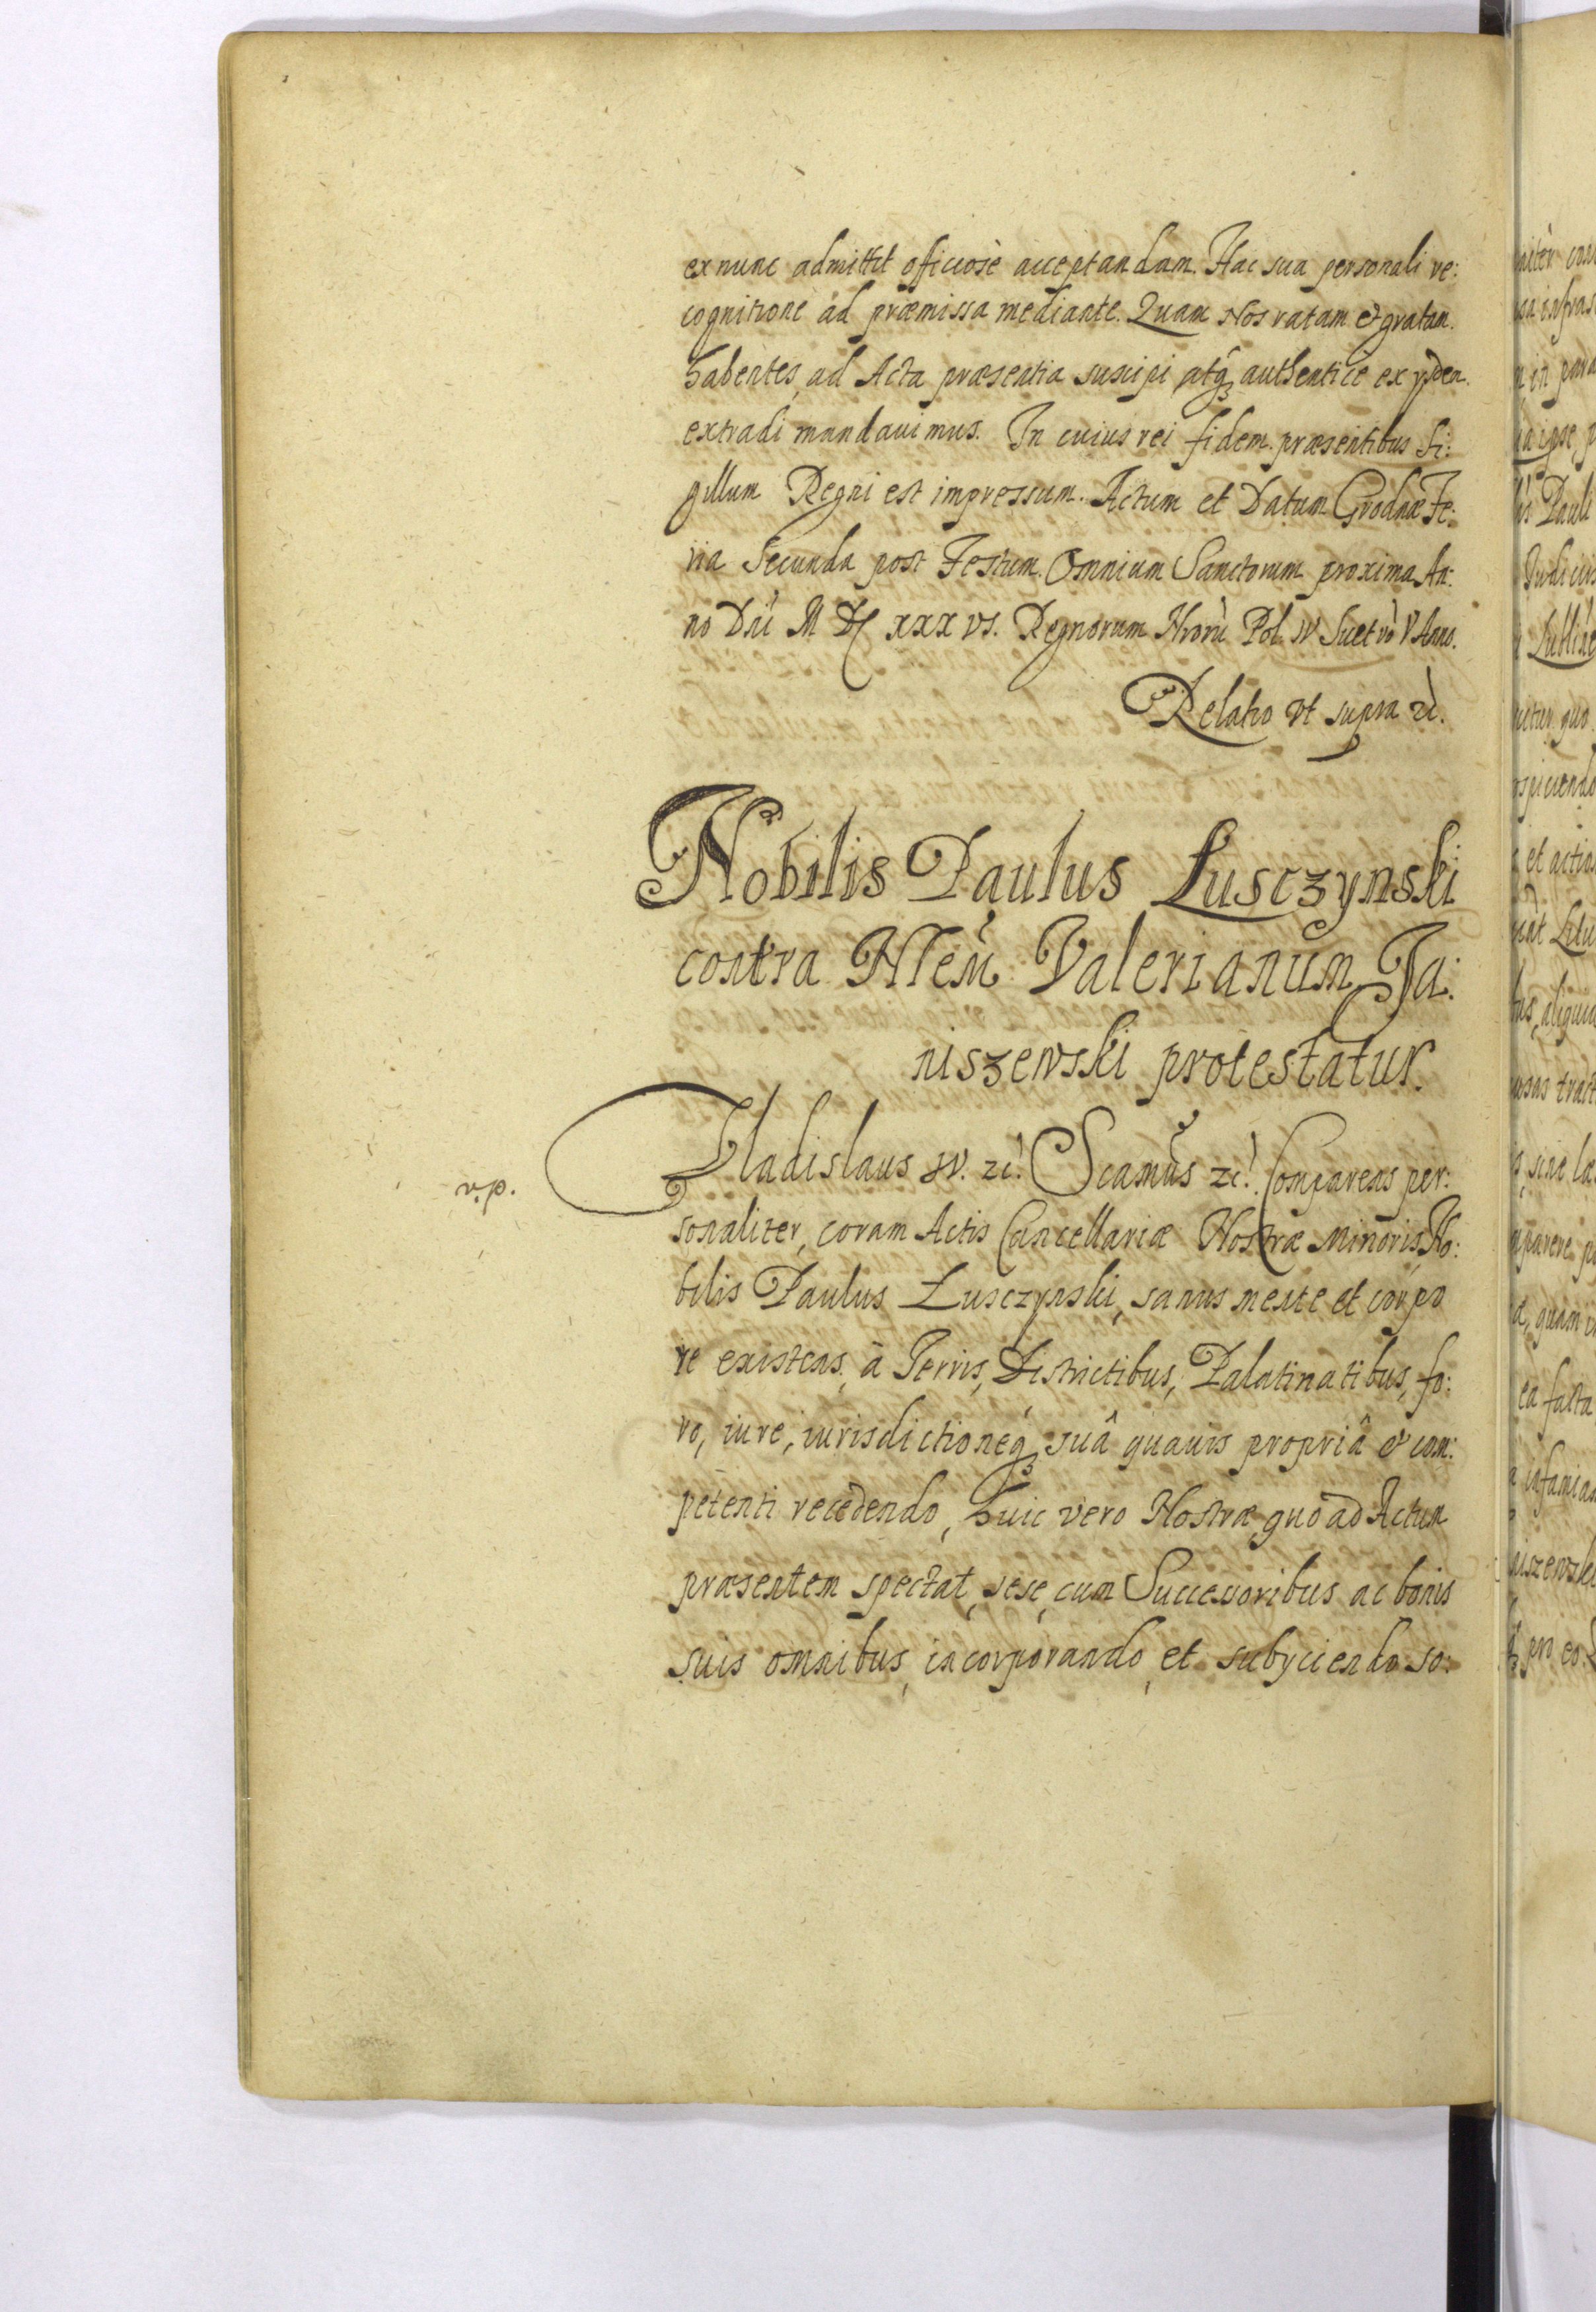 ex nunc admittit officiosè acceptandam. Hac sua personali re:
cognitione ad præmissa mediante. Quam Nos ratam et gratam
habentes, ad Acta præsentia suscipi atq̃ authenticè ex ijsdem
extradi mandauimus. In cuius rei fidem præsentibus Si:
gillum Regni est impressum. Actum et Datum Grodnæ Fe:
ria Secunda post Festum Omnium Sanctorum proxima An:
no Dni M DC XXX VI. Regnorum Nrorũ Pol. IV Suet vò V Anno.
Relatio vt supra
Nobilis Paulus Łusczynski
contra Nlem Valerianum Ja:
niszewski protestatur.
Vladislaus IV. zc. Scamus zc. Comparens per:
v.p.
sonaliter, coram Actis Cancellariæ Nostræ Minoris, No:
bilis Paulus Łusczynski, sanus mente et corpo
re existens, à Terris, Districtibus, Palatinatibus, fo:
ro, iure, iurisdictioneq̃ suâ quauis propriâ et com:
petenti recedendo, huic vero Nostræ quo ad Actum
præsentem spectat, sese cum Successoribus ac bonis
suis omnibus, incorporando, et subyciendo so: